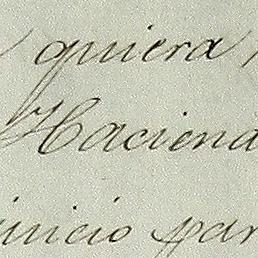 quiera
Haciend
juicio par